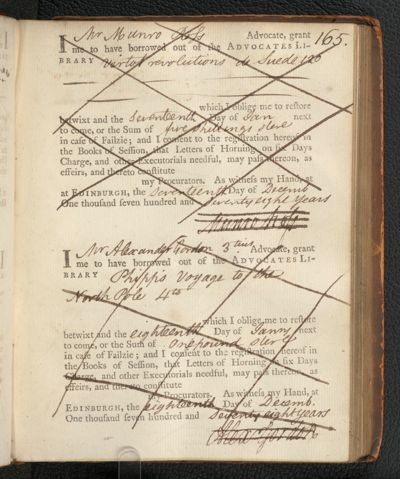 165.
I Mr Munro Ross Advocate, grant
me to have borrowed out of the ADVOCATES LI-
BRARY Vertot revolutions de Suede 12o
which I oblige me to reſtore
betwixt and the Seventeenth Day of Jan next
to come, or the Sum of five shillings sterl
in caſe of Failzie; and I conſent to the regiſtration hereof in
the Books of Seſſion, that Letters of Horning on ſix Days
Charge, and other Executorials needful, may paſs thereon, as
effeirs, and thereto conſtitute
my Procurators. As witneſs my Hand, at
at EDINBURGH, the Seventeenth Day of Decemb
One thouſand ſeven hundred and Seventy eight Years
Munro Ross
I Mr Alexander Gordon 3tius Advocate, grant
me to have borrowed out of the ADVOCATES LI-
BRARY Phipps Voyage to the
North Pole 4to
which I oblige me to reſtore
betwixt and the eighteenth Day of Janry next
to come, or the Sum of One pound sterl
in caſe of Failzie; and I conſent to the regiſtration hereof in
the Books of Seſſion, that Letters of Horning on ſix Days
Charge, and other Executorials needful, may paſs thereon, as
effeirs, and thereto conſtitute
Procurators. As witneſs my Hand, at
EDINBURGH, the eighteenth Day of Decemb.
One thouſand ſeven hundred and Seventy eight years
Alexr Gordon